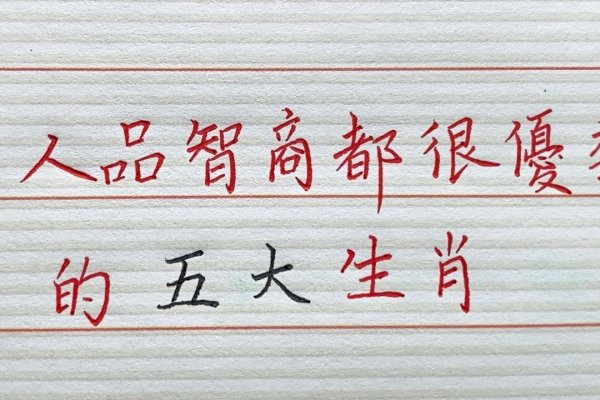 人品智商都很優
的五大生肖